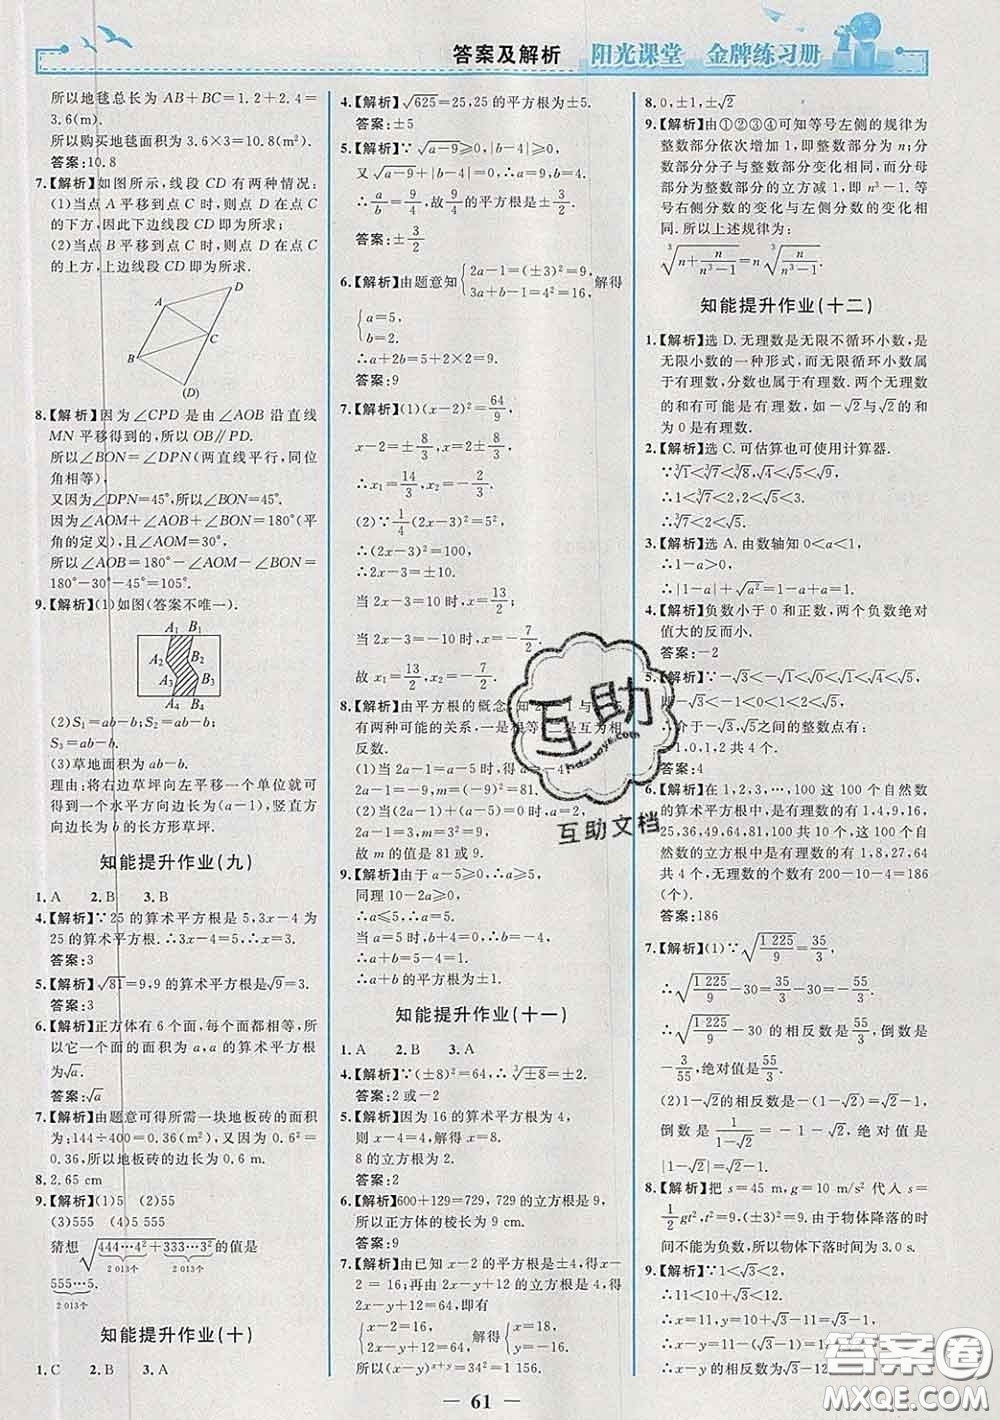 答案及解析 阳光课堂 金牌练习册
所以地毯总长为 AB+BC=1.2+2.4=
3.6(m).
所以购买地毯面积为 3.6×3=10.8(m²).
答案:10.8
7.【解析】如图所示,线段 CD 有两种情况:
(1)当点 A 平移到点 C 时,则点 D 在点 C
的下方,因此下边线段 CD 即为所求.
(2)当点 B 平移到点 C 时,则点 D 在点 C
的上方,上边线段 CD 即为所求.
D
A
C
B
(D)
8.【解析】因为∠CPD 是由∠AOB 沿直线
MN 平移得到的,所以 OB∥PD.
所以∠BON=∠DPN(两直线平行,同位
角相等),
又因为∠DPN=45°,所以∠BON=45°.
因为∠AOM+∠AOB+∠BON=180°(平
角的定义),且∠AOM=30°,
所以∠AOB=180°-∠AOM-∠BON=
180°-30°-45°=105°.
9.【解析】(1)如图(答案不唯一).
A₁ B₁
A₂ B₂
A₃ B₃
A₄ B₄
(2)S₁=ab-b;S₂=ab-b;
S₃=ab-b
(3)草地面积为 ab-b.
理由:将右边草坪向左平移一个单位就可
得到一个水平方向边长为(a-1),竖直方
向边长为 b 的长方形草坪.
知能提升作业(九)
1.A 2.B 3.B
4.【解析】∵25 的算术平方根是 5,3x-4 为
25 的算术平方根.∴3x-4=5,∴x=3.
答案:3
5.【解析】∵√81=9,9 的算术平方根是√9=3.
答案:3
6.【解析】正方体有 6 个面,每个面都相等,所
以它一个面的面积为 a,a 的算术平方根是
√a.
答案:√a
7.【解析】由题意可得所需一块地板砖的面积
为:144÷400=0.36(m²),又因为 0.6²=
0.36,所以地板砖的边长为 0.6 m.
8.2.65 cm
9.【解析】(1)5 (2)55
(3)555 (4)5 555
猜想 √(444…4²+333…3²) 的值是
2 013个 2 013个
555…5.
2 013个
知能提升作业(十)
1.C 2.B 3.A
4.【解析】√625=25,25 的平方根为±5.
答案:±5
5.【解析】∵√(a-9)≥0,|b-4|≥0,
又√(a-9)+|b-4|=0,∴a=9,b=4.
∴a/b=9/4,故9/4的平方根是±3/2.
答案:±3/2
6.【解析】由题意知{2a-1=(±3)²=9, 3a+b-1=4²=16,解得
{a=5, b=2,
∴a+2b=5+2×2=9.
答案:9
7.【解析】(1)(x-2)²=64/9,
x-2=±8/3,
∴x₁=14/3,x₂=-2/3.
(2)∵1/4(2x-3)²=5²,
∴(2x-3)²=100,
∴2x-3=±10.
当 2x-3=10 时,x=13/2;
当 2x-3=-10 时,x=-7/2.
故 x₁=13/2,x₂=-7/2.
8.【解析】由平方根的概念,知 2
有两种可能的关系,一是相等,二是互为相
反数.
(1)当 2a-1=5-a 时,a=
2a-1=-9,m=(-9)²=81.
(2)当(2a-1)+(a-5)=0 时,a=2,
∴2a-1=3,m=3²=9.
故 m 的值是 81 或 9.
9.【解析】由于 a-5≥0,∴a≥5.
同理 10-2a≥0,
∴a≤5.∴a=5.
当 a=5 时,b+4=0,∴b=-4.
∴a+b=5-4=1.
∴a+b 的平方根为±1.
知能提升作业(十一)
1.A 2.B 3.A
4.【解析】∵(±8)²=64,∴³√±8=±2.
答案:2 或-2
5.【解析】因为 16 的算术平方根为 4,
则 x-4=4,解得 x=8.
8 的立方根为 2.
答案:2
6.【解析】600+129=729,729 的立方根是 9,
所以正方体的棱长为 9 cm.
答案:9
7.【解析】由已知 x-2 的平方根是±4,得 x-
2=16;再由 2x-y+12 的立方根是 4,得
2x-y+12=64,即有
{x-2=16, 2x-y+12=64.解得{x=18, y=-16.
所以(x-y)^(x+y)=34²=1 156.
8.0,±1,±√2
9.【解析】由①②③④可知等号左侧的规律为
整数部分依次增加 1,即整数部分为 n;分
数部分分子与整数部分变化相同,而分母
部分为整数部分的立方减 1,即 n³-1.等
号右侧分数的变化与左侧分数的变化相
同.所以上述规律为:
³√(n+n/(n³-1))=n³√(n/(n³-1)).
知能提升作业(十二)
1.【解析】选 D.无理数是无限不循环小数,是
无限小数的一种形式,而无限循环小数属
于有理数,分数也属于有理数.两个无理数
的和有可能是有理数,如-√2与√2的和
为 0 是有理数.
2.【解析】选 C.可估算也可使用计算器.
∵³√1<³√7<³√8,√4<√5<√9,
∴1<³√7<2,2<√5<3.
∴³√7<2<√5.
3.【解析】选 A.由数轴知 0<a<1,
∴1-a>0,
∴|1-a|+√a²=1-a+a=1.
4.【解析】负数小于 0 和正数,两个负数绝对
值大的反而小.
答案:-2
5.【解析】∵-√4<-√3<-√1<√4<√5<√9,
即-√3<-1<2<√5<3,
∴介于-√3,√5之间的整数点有:
1,0,1,2 共 4 个.
答案:4
6.【解析】在 1,2,3,…,100 这 100 个自然数
的算术平方根中,是有理数的有 1,4,9,16,
25,36,49,64,81,100 共 10 个,这 100 个自
然数的立方根中,是有理数的有 1,8,27,64
共 4 个,无理数的个数有 200-10-4=186
(个).
答案:186
7.【解析】(1)∵√(1 225/9)=35/3,
∴√(1 225/9)-30=35/3-30=-55/3.
∴√(1 225/9)-30 的相反数是55/3,倒数是
-3/55,绝对值是55/3.
(2)1-√2的相反数是-(1-√2)=√2-1,
倒数是1/(1-√2)=-1-√2,绝对值是
|1-√2|=√2-1.
8.【解析】把 s=45 m,g=10 m/s² 代入 s=
1/2gt²,t²=9,(±3)²=9.由于物体降落的时
间不能为负数,所以物体下落时间为 3.0 s.
9.【解析】∵1<√3<2,
∴11<10+√3<12.
∴x=11,y=10+√3-11=√3-1,
∴x-y=11-(√3-1)=12-√3,
∴x-y 的相反数是√3-12.
61
互助
hdzuoye.com
互助文档
答案圈
MXQE.COM